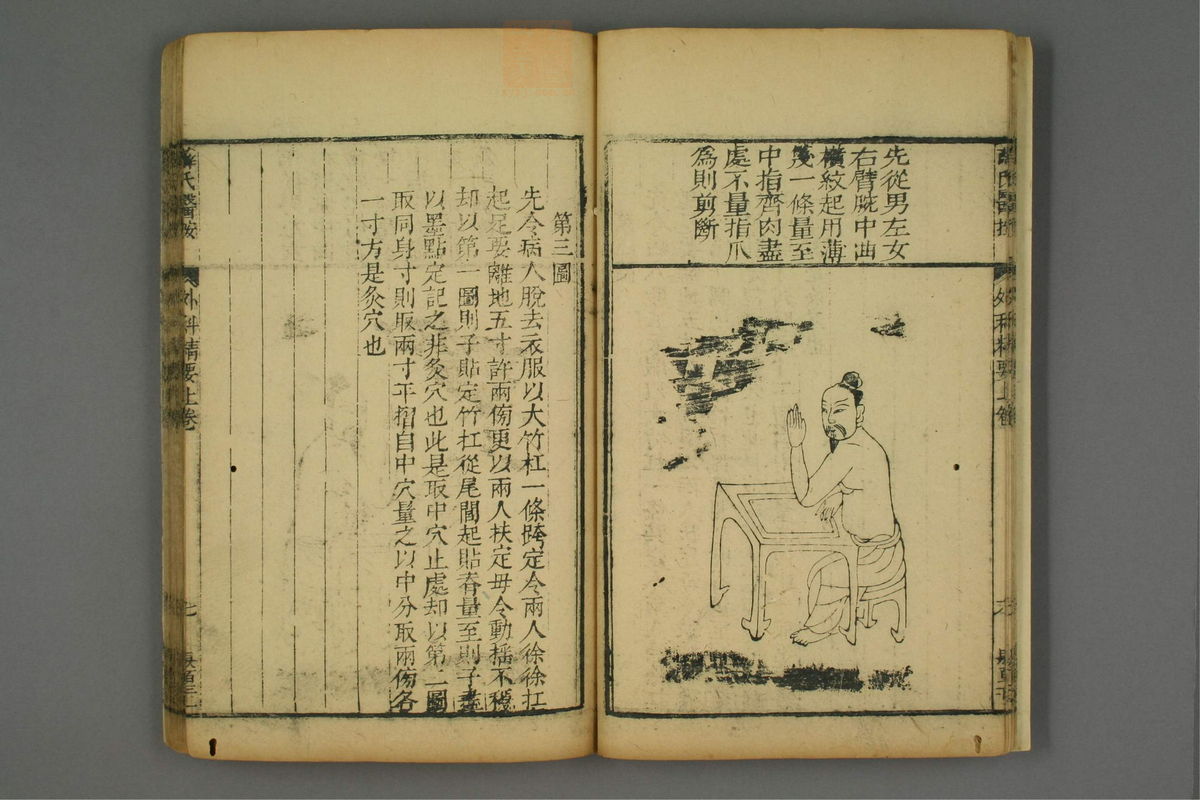 先從男左女
右臂腕中曲
橫紋起用薄
篾一條量至
中指齊肉盡
處不量指爪
為則剪斷
第三圖
先令病人脫去衣服以大竹杠一條跨定令兩人徐徐扛
起足要離地五寸許兩傍更以兩人扶定毋令動搖不穩
却以第一圖則子貼定竹杠從尾閭起貼脊量至則子盡
以墨點定記之非灸穴也此是取中穴止處却以第二圖
取同身寸則取兩寸平摺自中穴量之以中分取兩傍各
一寸方是灸穴也
薛氏醫按
外科精要上卷
七